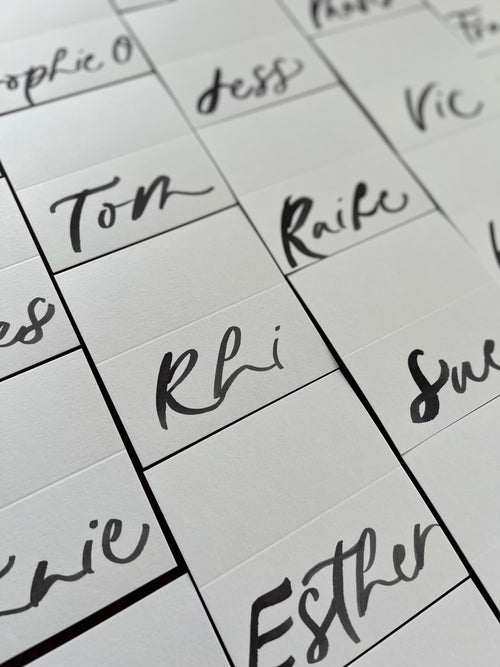 ophie O
Jess
Vic
Tom
Raife
es
Rhi
Sue
nie
Esther